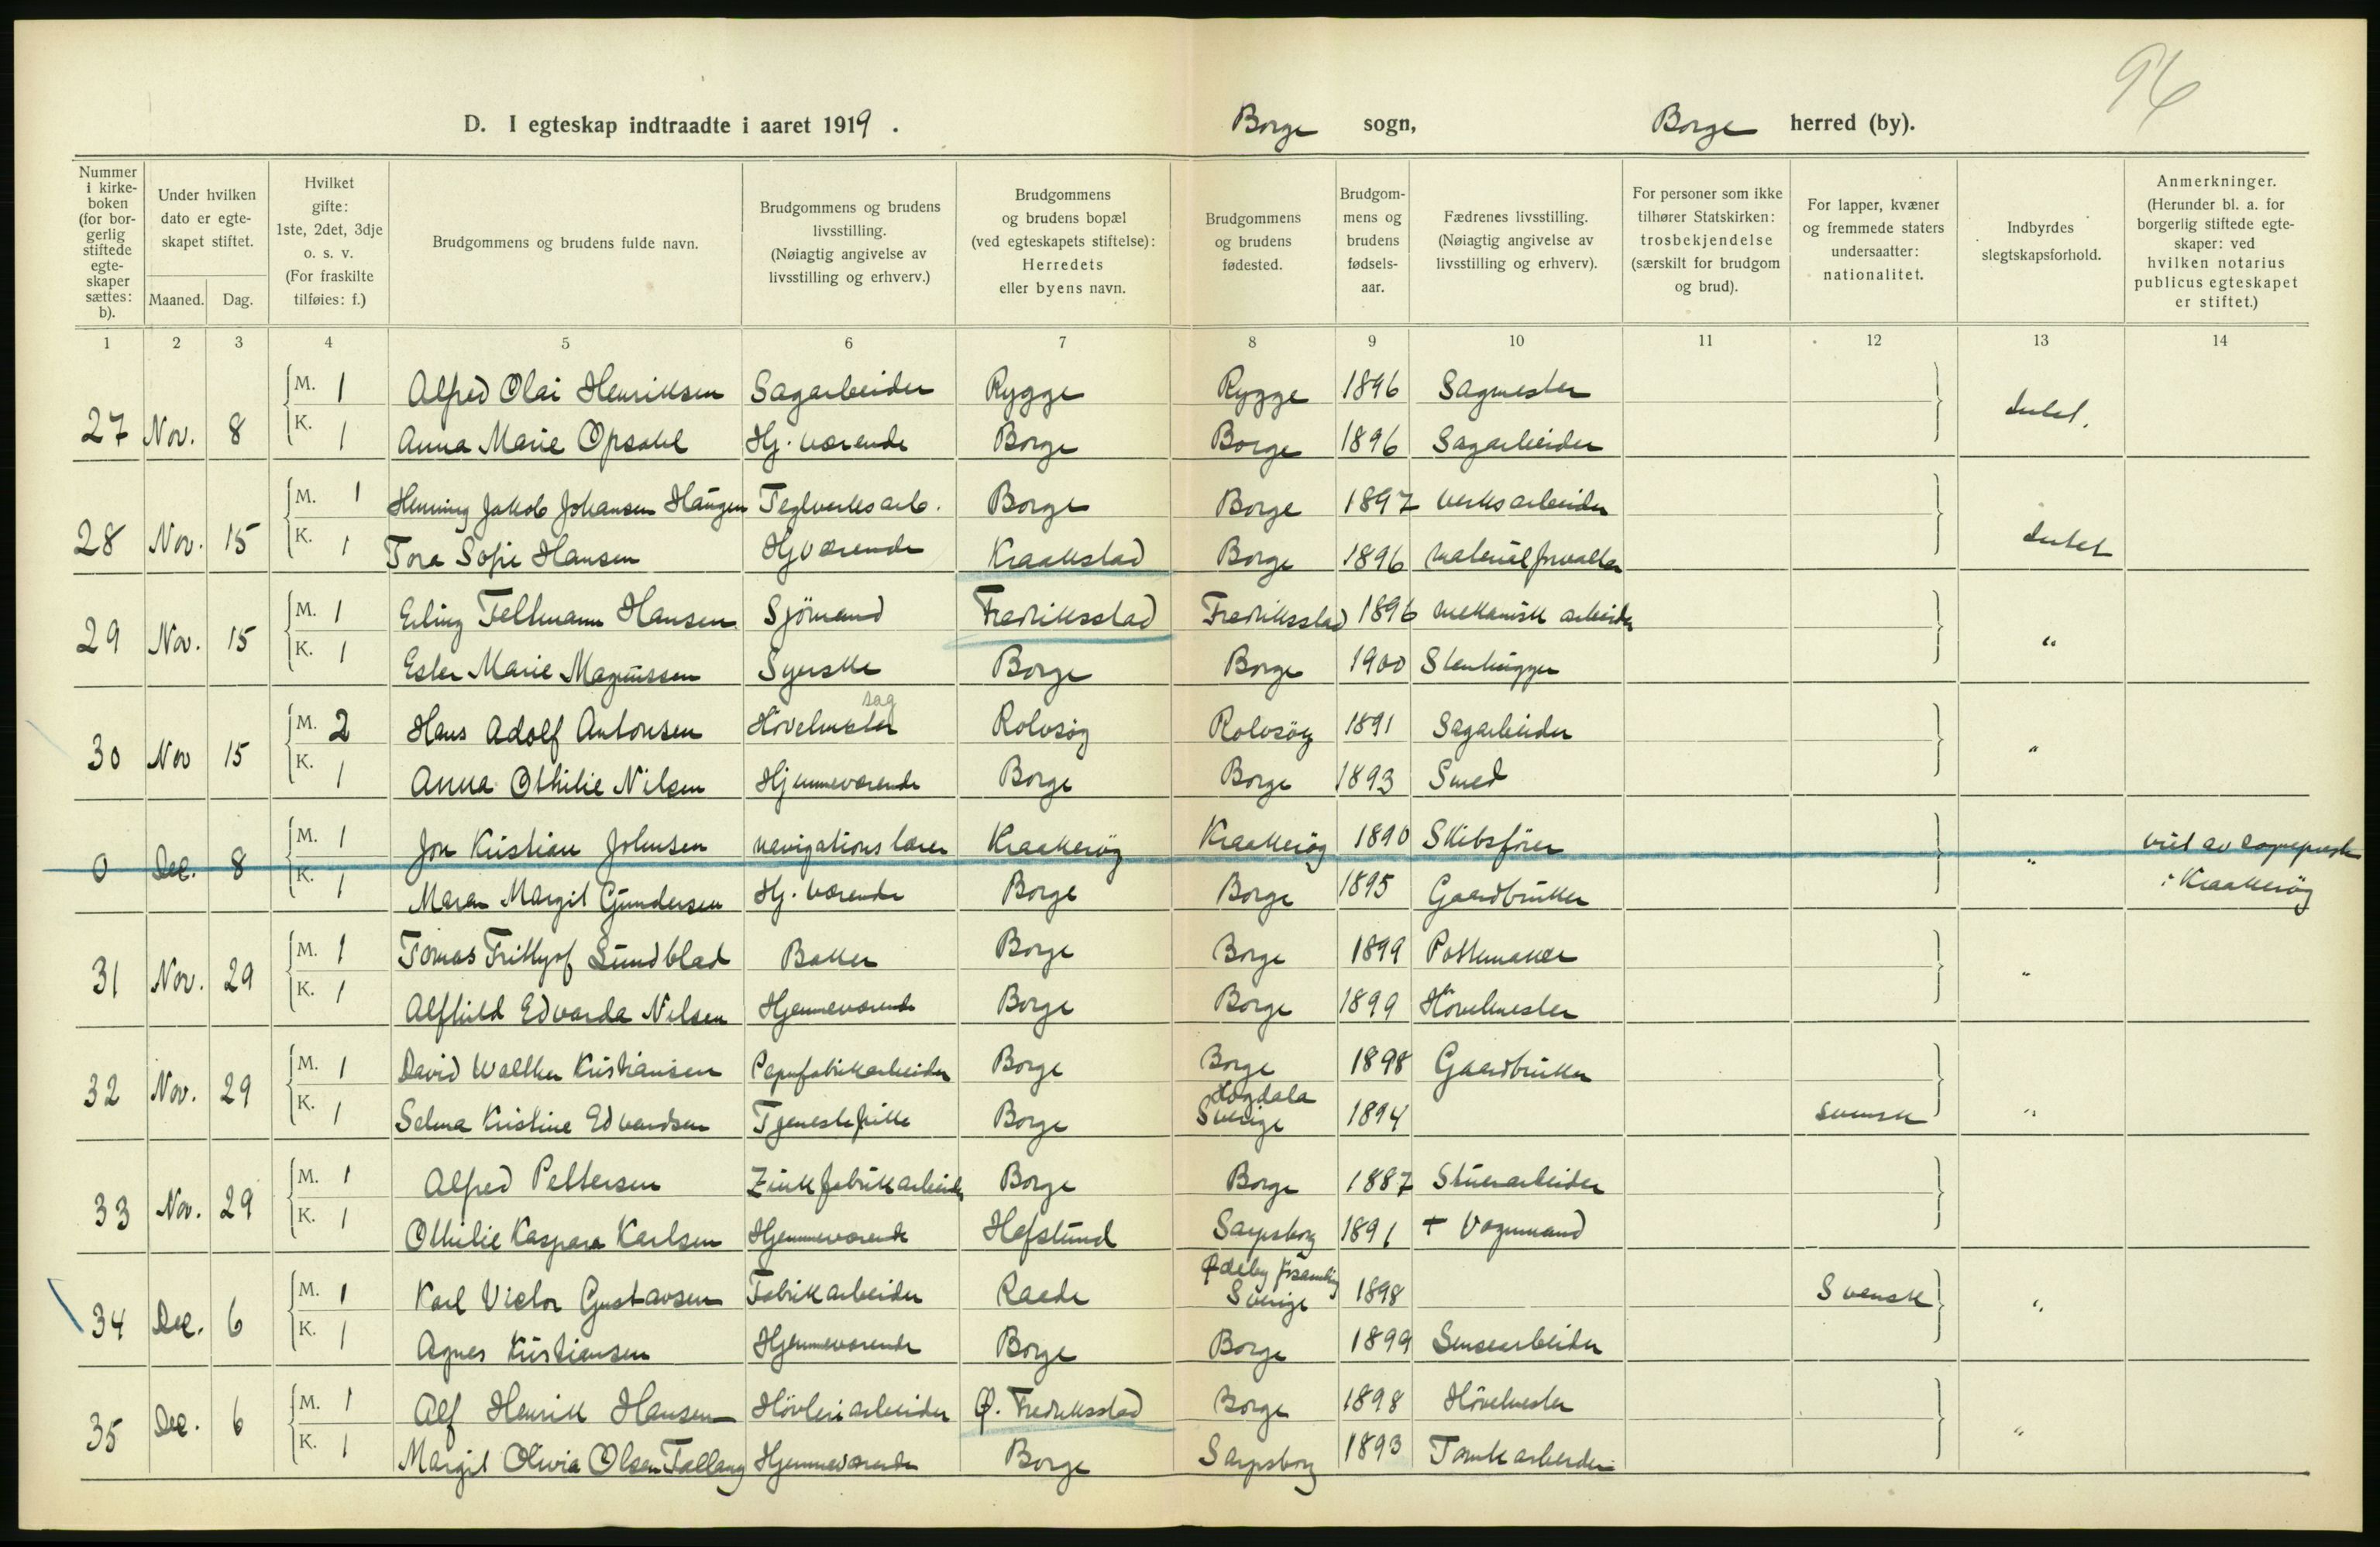 96
D. I egteskap indtraadte i aaret 1919. Borge sogn, Borge herred (by).
Nummer i kirke-boken (for bor-gerlig stiftede egte-skaper sættes: b).
Under hvilken dato er egte-skapet stiftet.
Maaned. Dag.
Hvilket gifte: 1ste, 2det, 3dje o. s. v. (For fraskilte tilføies: f.)
Brudgommens og brudens fulde navn.
Brudgommens og brudens livsstilling. (Nøiagtig angivelse av livsstilling og erhverv.)
Brudgommens og brudens bopæl (ved egteskapets stiftelse): Herredets eller byens navn.
Brudgommens og brudens fødested.
Brudgom-mens og brudens fødsels-aar.
Fædrenes livsstilling. (Nøiagtig angivelse av livsstilling og erhverv).
For personer som ikke tilhører Statskirken: trosbekjendelse (særskilt for brudgom og brud).
For lapper, kvæner og fremmede staters undersaatter: nationalitet.
Indbyrdes slegtskapsforhold.
Anmerkninger. (Herunder bl. a. for borgerlig stiftede egte-skaper: ved hvilken notarius publicus egteskapet er stiftet.)
1 2 3 4 5 6 7 8 9 10 11 12 13 14
27 Nov. 8 M. 1 Alfred Olai Henriksen Sagarbeider Rygge Rygge 1896 Sagmester Intet.
K. 1 Anna Marie Opsahl Hj. værende Borge Borge 1896 Sagarbeider
28 Nov. 15 M. 1 Henning Jakob Johansen Haugen Teglverksarb. Borge Borge 1897 Verksarbeider Intet
K. 1 Tora Sofie Hansen Hjværende Kraakstad Borge 1896 Materialforvalter
29 Nov. 15 M. 1 Erling Feltmann Hansen Sjömand Fredriksstad Fredriksstad 1896 mekanisk arbeider "
K. 1 Ester Marie Magnussen Syerske Borge Borge 1900 Stenhugger
sag
30 Nov 15 M. 2 Hans Adolf Antonsen Hövelmester Rolvsöy Rolvsöy 1891 Sagarbeider "
K. 1 Anna Othilie Nilsen Hjemmeværende Borge Borge 1893 Smed
0 Dec. 8 M. 1 Jon Kristian Johnsen navigationslærer Kraakeröy Kraakeröy 1890 Skibsförer " viet av sogneprest
K. 1 Maren Margit Gundersen Hj. værende Borge Borge 1895 Gaardbruker i Kraakeröy
31 Nov. 29 M. 1 Tomas Frithjof Lundblad Baker Borge Borge 1899 Pottemaker "
K. 1 Alfhild Edvarda Nilsen Hjemmeværende Borge Borge 1899 Hövelmester
32 Nov. 29 M. 1 David Walther Kristiansen Papirfabrikarbeider Borge Borge 1898 Gaardbruker
K. 1 Selma Kristine Edvardsen Tjenestepike Borge Hogdala Sverige 1894 svensk "
33 Nov. 29 M. 1 Alfred Pettersen Zinkfabrikarbeider Borge Borge 1887 Stuerarbeider
K. 1 Othilie Kaspara Karlsen Hjemmeværende Hafslund Sarpsborg 1891 + Vognmand
34 Dec. 6 M. 1 Karl Victor Gustavsen Fabrikarbeider Raade Sverige 1898 Svensk "
K. 1 Agnes Kristiansen Hjemmeværende Borge Borge 1899 Lensearbeider
35 Dec. 6 M. 1 Alf Henrik Hansen Hövleriarbeider Ø. Fredriksstad Borge 1898 Hövelmester "
K. 1 Margit Olivia Olsen Hjemmeværende Borge Sarpsborg 1893 Tomtearbeider